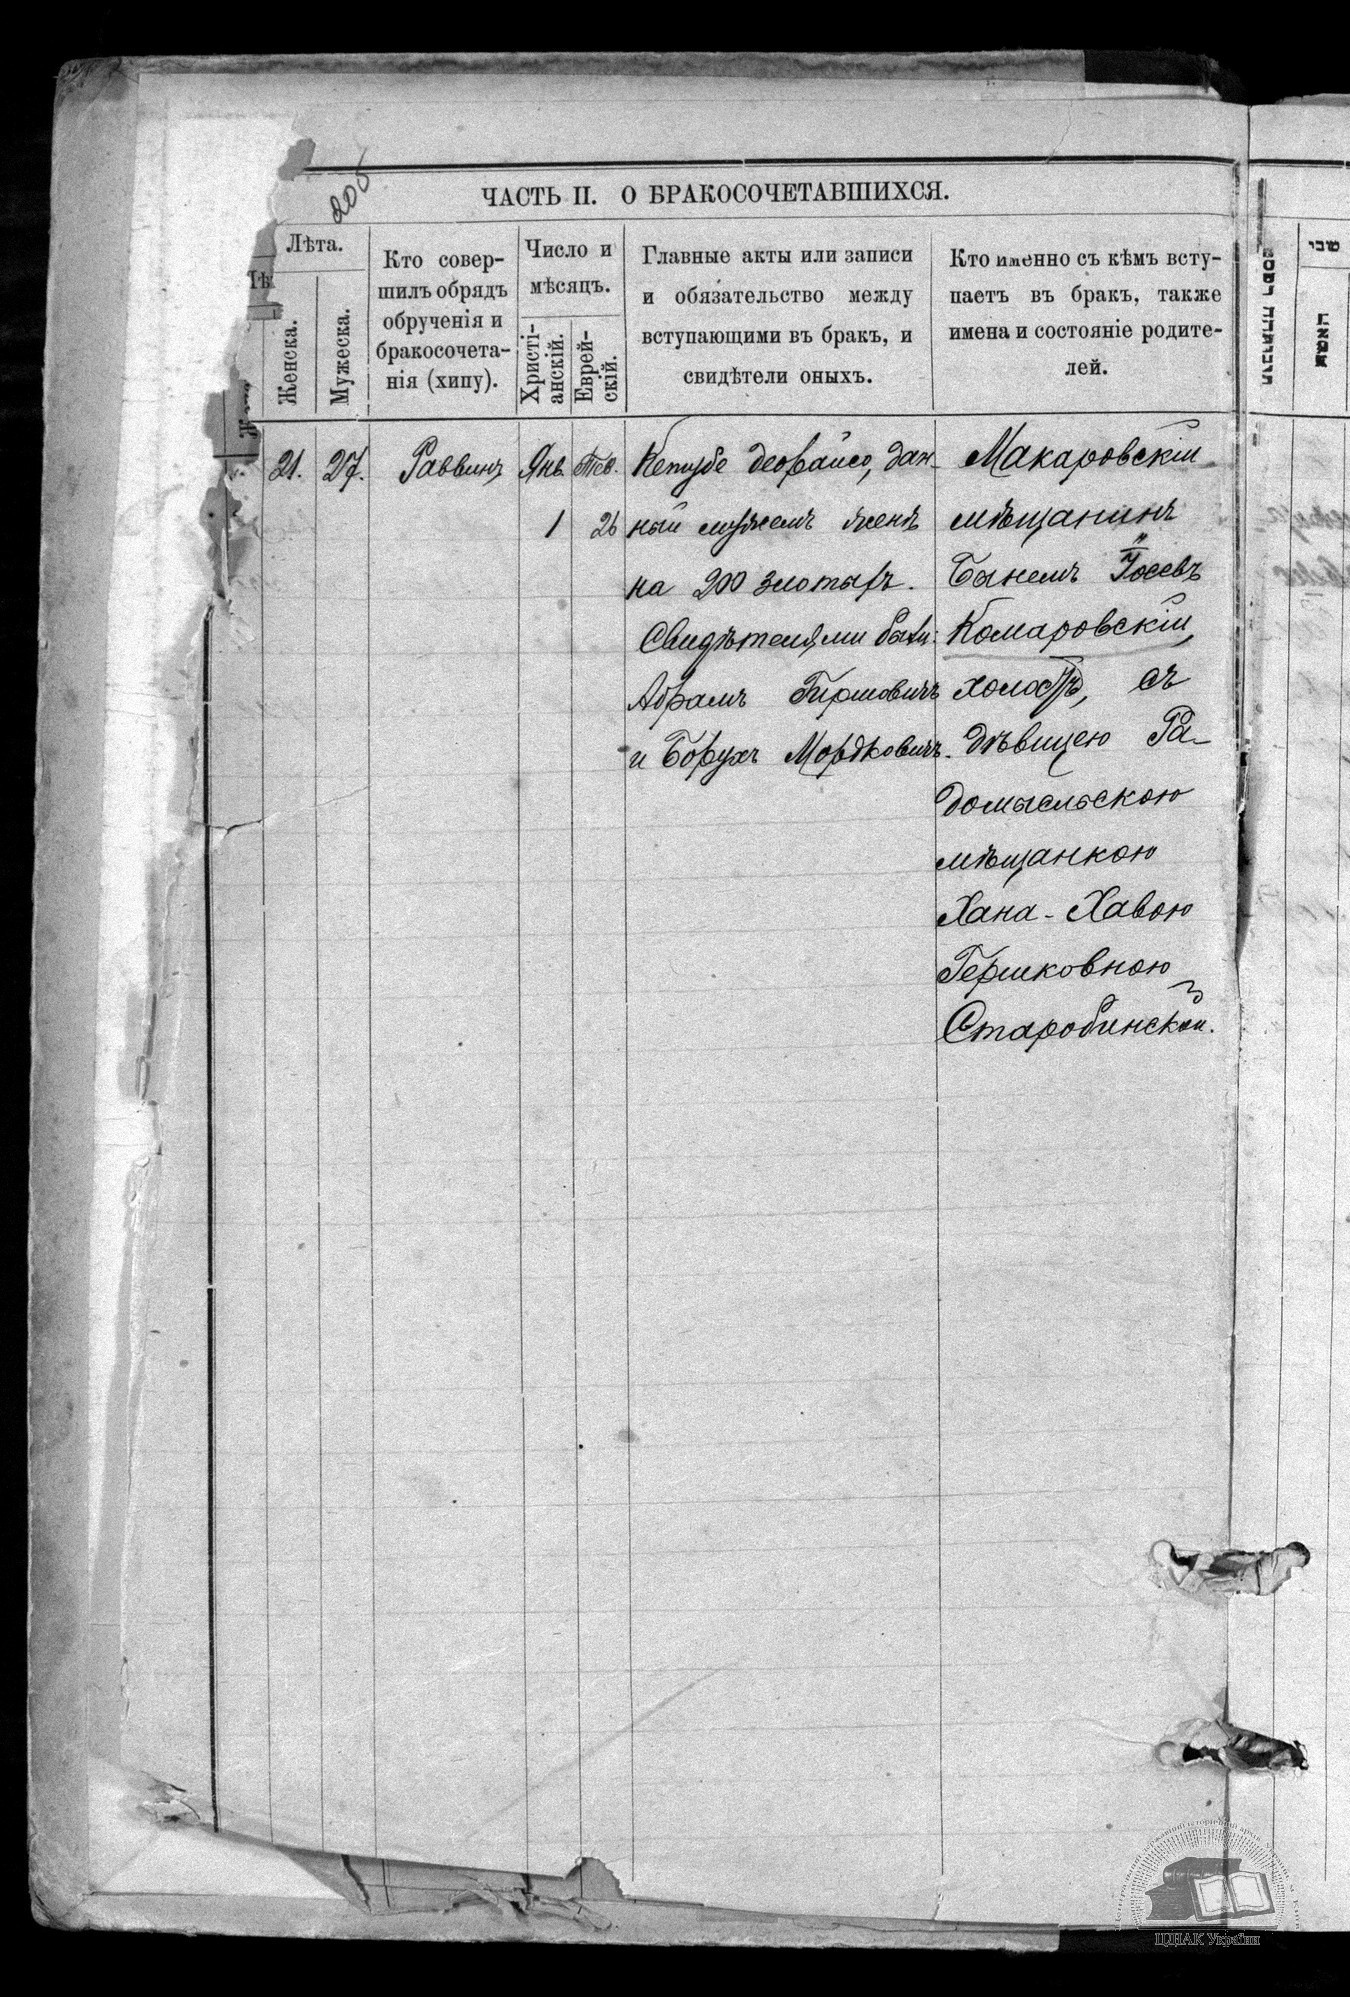 206
ЧАСТЬ II. О БРАКОСОЧЕТАВШИХСЯ.
Лѣта.
Женска.
Мужеска.
Кто совер-
шилъ обрядъ
обрученія и
бракосочета-
нія (хипу).
Число и
мѣсяцъ.
Христі-
анскій.
Еврей-
скій.
Главные акты или записи
и обязательство между
вступающими въ бракъ, и
свидѣтели оныхъ.
Кто именно съ кѣмъ всту-
паетъ въ бракъ, также
имена и состояніе родите-
лей.
21.
27.
Раввинъ
Янв.
1
Тев.
26
Кетубе деорайсо, дан-
ный мужемъ женѣ
на 200 злотыхъ.
Свидѣтелями были:
Абрамъ Гиршовичъ
и Борухъ Мордковичъ.
Макаровскій
мѣщанинъ
Бынемъ Іосевъ
Комаровскій,
холостъ, съ
дѣвицею Ра-
домысльскою
мѣщанкою
Хана-Хавою
Гершковною
Старобинской.
שבי
ЦДІАК України